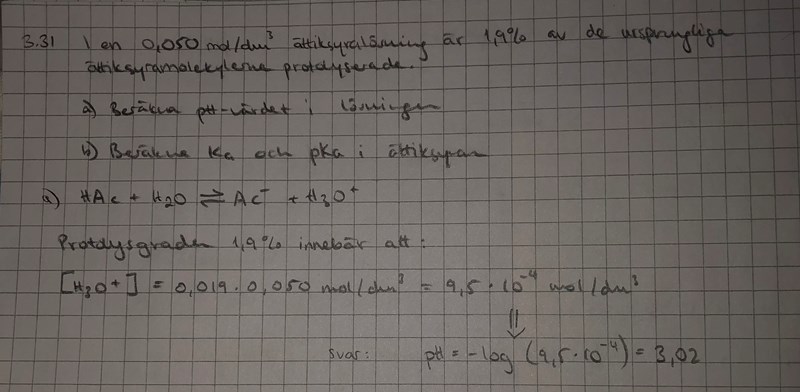 3.31 I en 0,050 mol/dm³ ättiksyralösning är 1,9% av de ursprungliga
ättiksyramolekylerna protolyserade.
a) Beräkna pH-värdet i lösningen
b) Beräkna Ka och pKa i ättiksyran
a) HAc + H2O ⇌ Ac⁻ + H3O⁺
Protolysgraden 1,9% innebär att:
[H3O⁺] = 0,019 · 0,050 mol/dm³ = 9,5 · 10⁻⁴ mol/dm³
⇓
svar: pH = -log (9,5 · 10⁻⁴) = 3,02